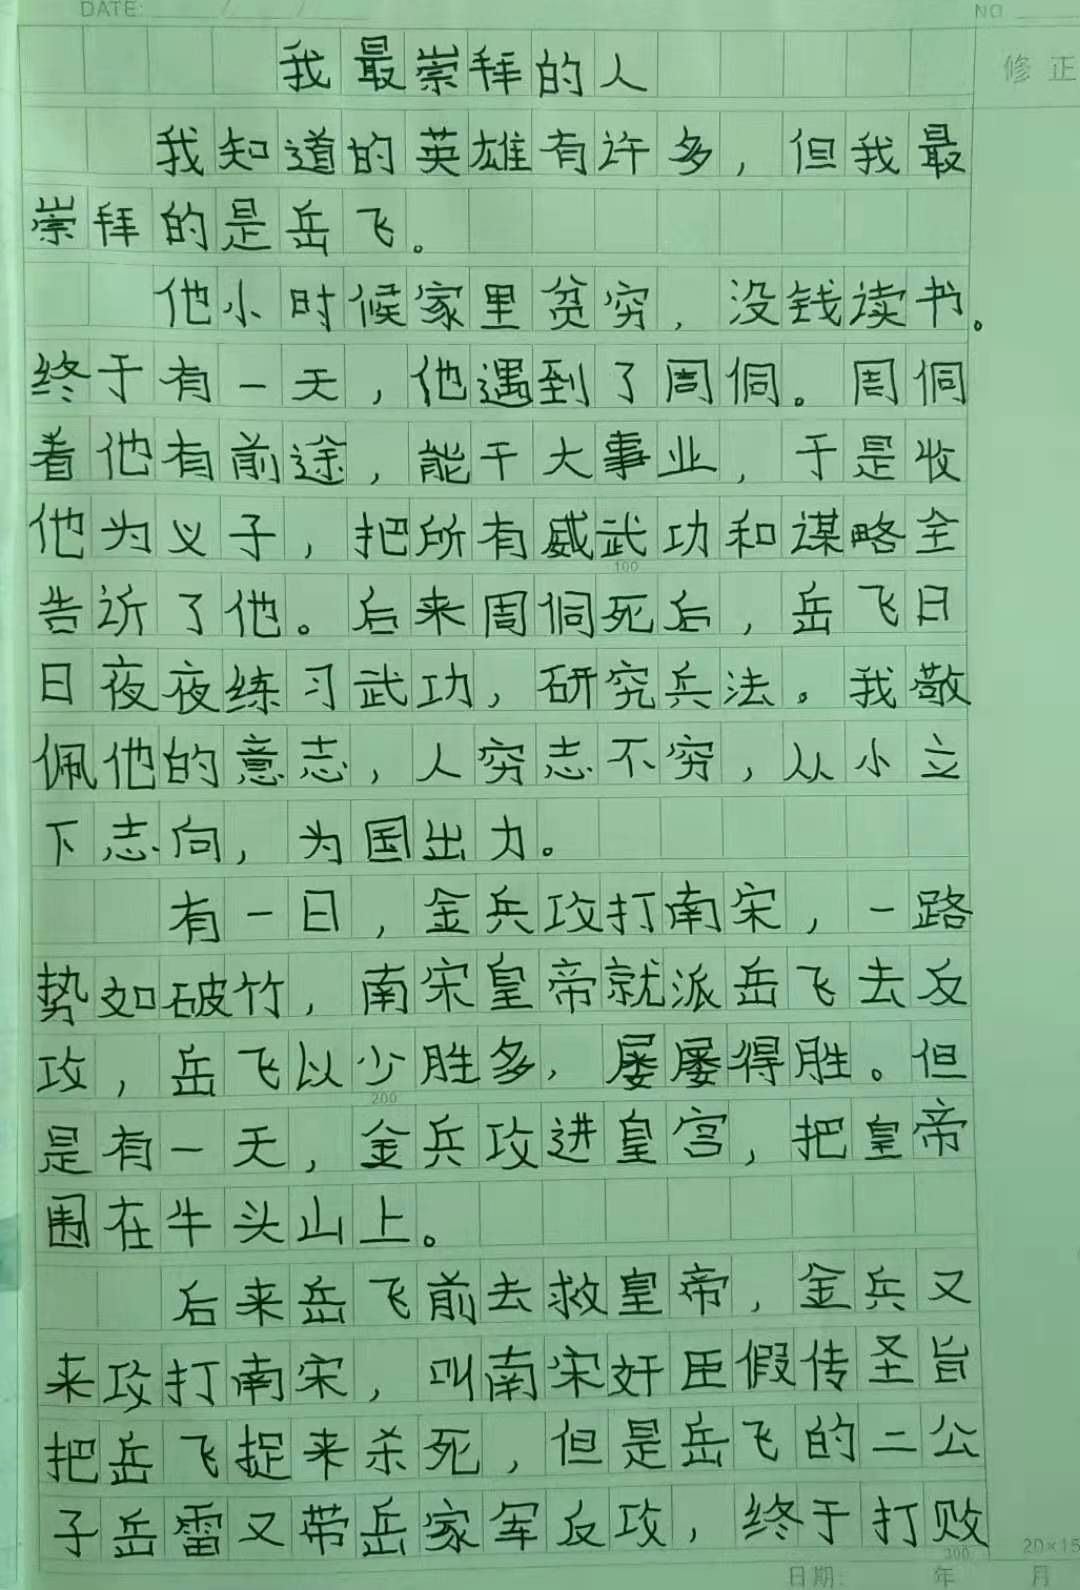 DATE: / /
NO
我最崇拜的人
修正
我知道的英雄有许多，但我最
崇拜的是岳飞。
他小时候家里贫穷，没钱读书。
终于有一天，他遇到了周侗。周侗
看他有前途，能干大事业，于是收
他为义子，把所有威武功和谋略全
100
告诉了他。后来周侗死后，岳飞日
日夜夜练习武功，研究兵法。我敬
佩他的意志，人穷志不穷，从小立
下志向，为国出力。
有一日，金兵攻打南宋，一路
势如破竹，南宋皇帝就派岳飞去反
攻，岳飞以少胜多，屡屡得胜。但
200
是有一天，金兵攻进皇宫，把皇帝
围在牛头山上。
后来岳飞前去救皇帝，金兵又
来攻打南宋，叫南宋奸臣假传圣旨
把岳飞捉来杀死，但是岳飞的二公
子岳雷又带岳家军反攻，终于打败
300
20×15
日期: 年 月